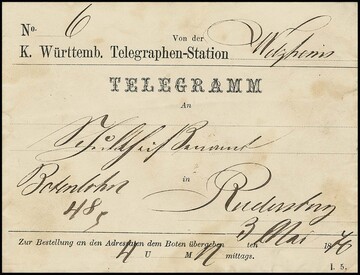 No. 6 Von der
K. Württemb. Telegraphen-Station Welzheim
TELEGRAMM
An
Schultheißenamt
in
Botenlohn Rudersberg
48
3 Mai 1876
Zur Bestellung an den Adressaten dem Boten übergeben den
4 UHR N mittags.
I. 5.